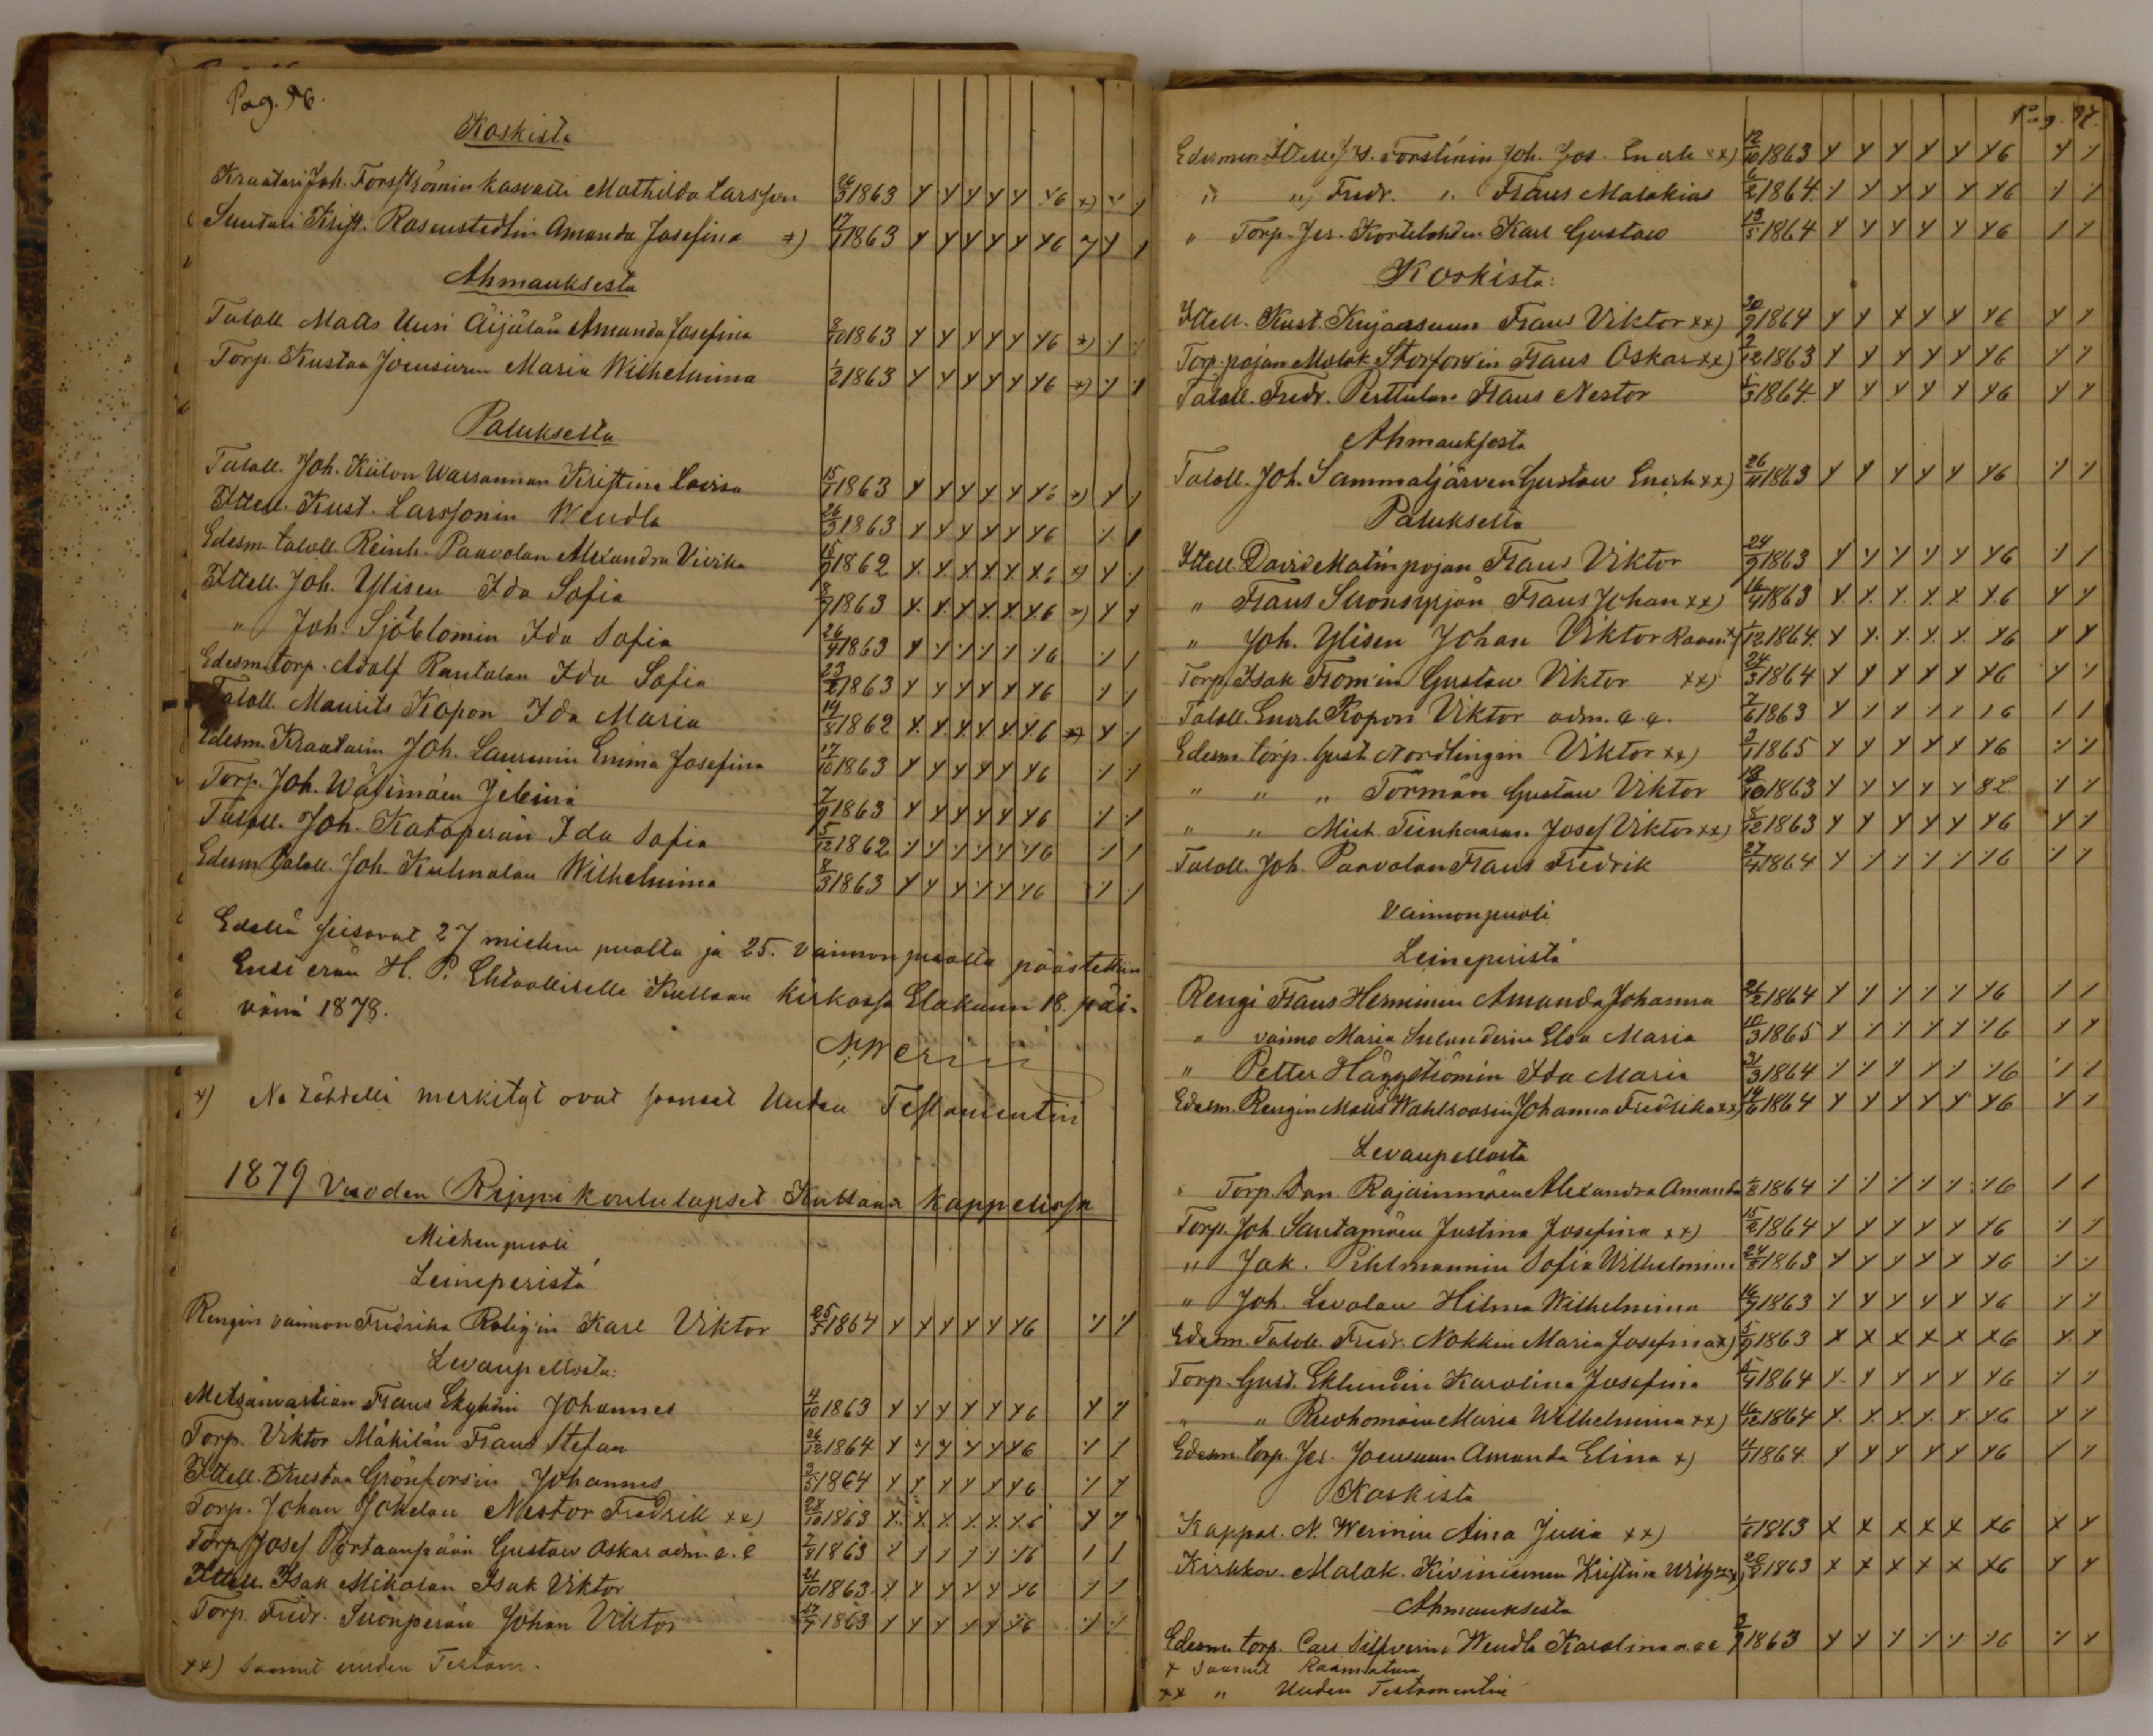 Pag. 96.
Koskista
Kraatari Joh. Forsströmin kasvatti Mathilda Larsson 26/3 1863 x x x x x x6 x) x x
Suutari Krist. Rosenstedtin Amanda Josefina x) 17/1 1863 x x x x x x6 x x
Ahmauksesta
Taloll. Matts Uusi Äijälän Amanda Josefina 8/10 1863 x x x x x x6 x) x x
Torp. Kustaa Joensuun Maria Wilhelmina 1/2 1863 x x x x x x6 x) x x
Paluksesta
Taloll. Joh. Kiilon Waisannan Kristina Lovisa 15/7 1863 x x x x x x6 x) x x
Ittell. Kust. Larssonin Wendla 26/3 1863 x x x x x x6 x x
Edesm. taloll. Reinh. Paavolan Alexandra Vivika 15/9 1862 x x x x x x6 x) x x
Ittell. Joh. Ylisen Ida Sofia 8/9 1863 x x x x x x6 x) x x
" Joh. Sjöblomin Ida Sofia 26/4 1863 x x x x x x6 x x
Edesm. torp. Adolf Rantalan Ida Sofia 23/2 1863 x x x x x x6 x x
Taloll. Maurits Kopon Ida Maria 19/8 1862 x x x x x x6 x) x x
Edesm. Kraatarin Joh. Laurenin Emma Josefina 17/10 1863 x x x x x x6 x x
Torp. Joh. Wälimäen Jelina 7/9 1863 x x x x x x6 x x
Taloll. Joh. Kataperän Ida Sofia 5/12 1862 x x x x x x6 x x
Edesm. Taloll. Joh. Kulmalan Wilhelmina 8/3 1863 x x x x x x6 x x
Edellä seisovat 27 miehen puolta ja 25. vaimon puolta päästettiin
Ensi erän H. P. Ehtoolliselle Kullaan kirkossa Elokuun 18. päi-
vänä 1878.
N. Werin
x) Ne tähdellä merkityt ovat saaneet Uuden Testamentin
1879 Vuoden Rippikoululapset Kullaan kappelissa
Miehen puoli
Leineperistä
Rengin vaimon Fredrika Roligin Karl Viktor 25/5 1864 x x x x x x6 x x
Levanpellosta:
Metsänvartian Frans Ekyhin Johannes 4/10 1863 x x x x x x6 x x
Torp. Viktor Mäkilän Frans Stefan 26/12 1864 x x x x x x6 x x
Ittell. Kustaa Grönforsin Johannes 3/5 1864 x x x x x x6 x x
Torp. Johan Jokelan Nestor Fredrik xx) 28/10 1863 x x x x x x6 x x
Torp. Josef Portaanpään Gustav Oskar adm. a. c 7/8 1863 x x x x x x6 x x
Ittell. Isak Mikolan Isak Viktor 21/10 1863 x x x x x x6 x x
Torp. Fredr. Suonperän Johan Viktor 17/7 1863 x x x x x x6 x x
xx) saanut uuden Testam.
Pag. 97.
Edesmen. Ittell. J. H. Forstinin Joh. Jos. Enerk xx) 12/10 1863 x x x x x x6 x x
" " Fredr. " Frans Malakias 6/2 1864 x x x x x x6 x x
" Torp. Jer. Kortelahden Karl Gustav 13/5 1864 x x x x x x6 x x
Koskista:
Ittell. Kust. Kujansuun Frans Viktor xx) 30/9 1864 x x x x x x6 x x
Torp. pojan Malak. Storforsin Frans Oskar xx) 2/12 1863 x x x x x x6 x x
Taloll. Fredr. Perttulan Frans Nestor 5/3 1864 x x x x x x6 x x
Ahmauksesta
Taloll. Joh. Sammaljärven Gustav Enerk xx) 26/11 1863 x x x x x x6 x x
Paluksesta
Ittell. David Matinpojan Frans Viktor 24/9 1863 x x x x x x6 x x
" Frans Suonsyrjän Frans Johan xx) 16/4 1863 x x x x x x6 x x
" Joh. Ylisen Johan Viktor Raam. x) 1/12 1864 x x x x x x6 x x
Torp. Isak Fromin Gustav Viktor xx) 24/3 1864 x x x x x x6 x x
Taloll. Enerk Kopon Viktor adm. a. c. 7/6 1863 x x x x x x6 x x
Edesm. torp. Gust. Nordlingin Viktor xx) 3/1 1865 x x x x x x6 x x
" " " Tormän Gustav Viktor 18/10 1863 x x x x x 82 x x
" " Mich. Teinhaaran Josef Viktor xx) 5/12 1863 x x x x x x6 x x
Taloll. Joh. Paavolan Frans Fredrik 27/4 1864 x x x x x x6 x x
Vaimonpuoli
Leineperistä
Rengi Frans Herminin Amanda Johanna 21/2 1864 x x x x x x6 x x
" vaimo Maria Sulanderin Elsa Maria 10/3 1865 x x x x x x6 x x
" Petter Häggströmin Ida Maria 31/3 1864 x x x x x x6 x x
Edesm. Rengin Matts Wahlroosin Johanna Fredrika xx) 14/6 1864 x x x x x x6 x x
Levanpellosta
" Torp. Dan. Rajainmäen Alexandra Amanda 1/8 1864 x x x x x x6 x x
Torp. Joh Santamäen Justina Josefina xx) 15/2 1864 x x x x x x6 x x
" Jak. Pihlmannin Sofia Wilhelmina 24/8 1863 x x x x x x6 x x
" Joh. Levolan Hilma Wilhelmina 16/7 1863 x x x x x x6 x x
Edesm. Taloll. Fredr. Nokkin Maria Josefina x) 5/9 1863 x x x x x x6 x x
Torp. Gust. Eklundin Karolina Josefina 5/7 1864 x x x x x x6 x x
" " Ruohomäen Maria Wilhelmina xx) 16/12 1864 x x x x x x6 x x
Edesm. torp. Jer. Joensuun Amanda Elina x) 4/7 1864 x x x x x x6 x x
Koskista
Kappal. N. Werinin Aina Julia xx) 1/6 1863 x x x x x x6 x x
Kirkkov. Malak. Kiviniemen Kristina Wilh. xx) 26/8 1863 x x x x x x6 x x
Ahmauksesta
Edesm. torp. Carl Silfverin Wendla Karolina a. c 3/9 1863 x x x x x x6 x x
x Saanut Raamatun
xx " Uuden Testamentin